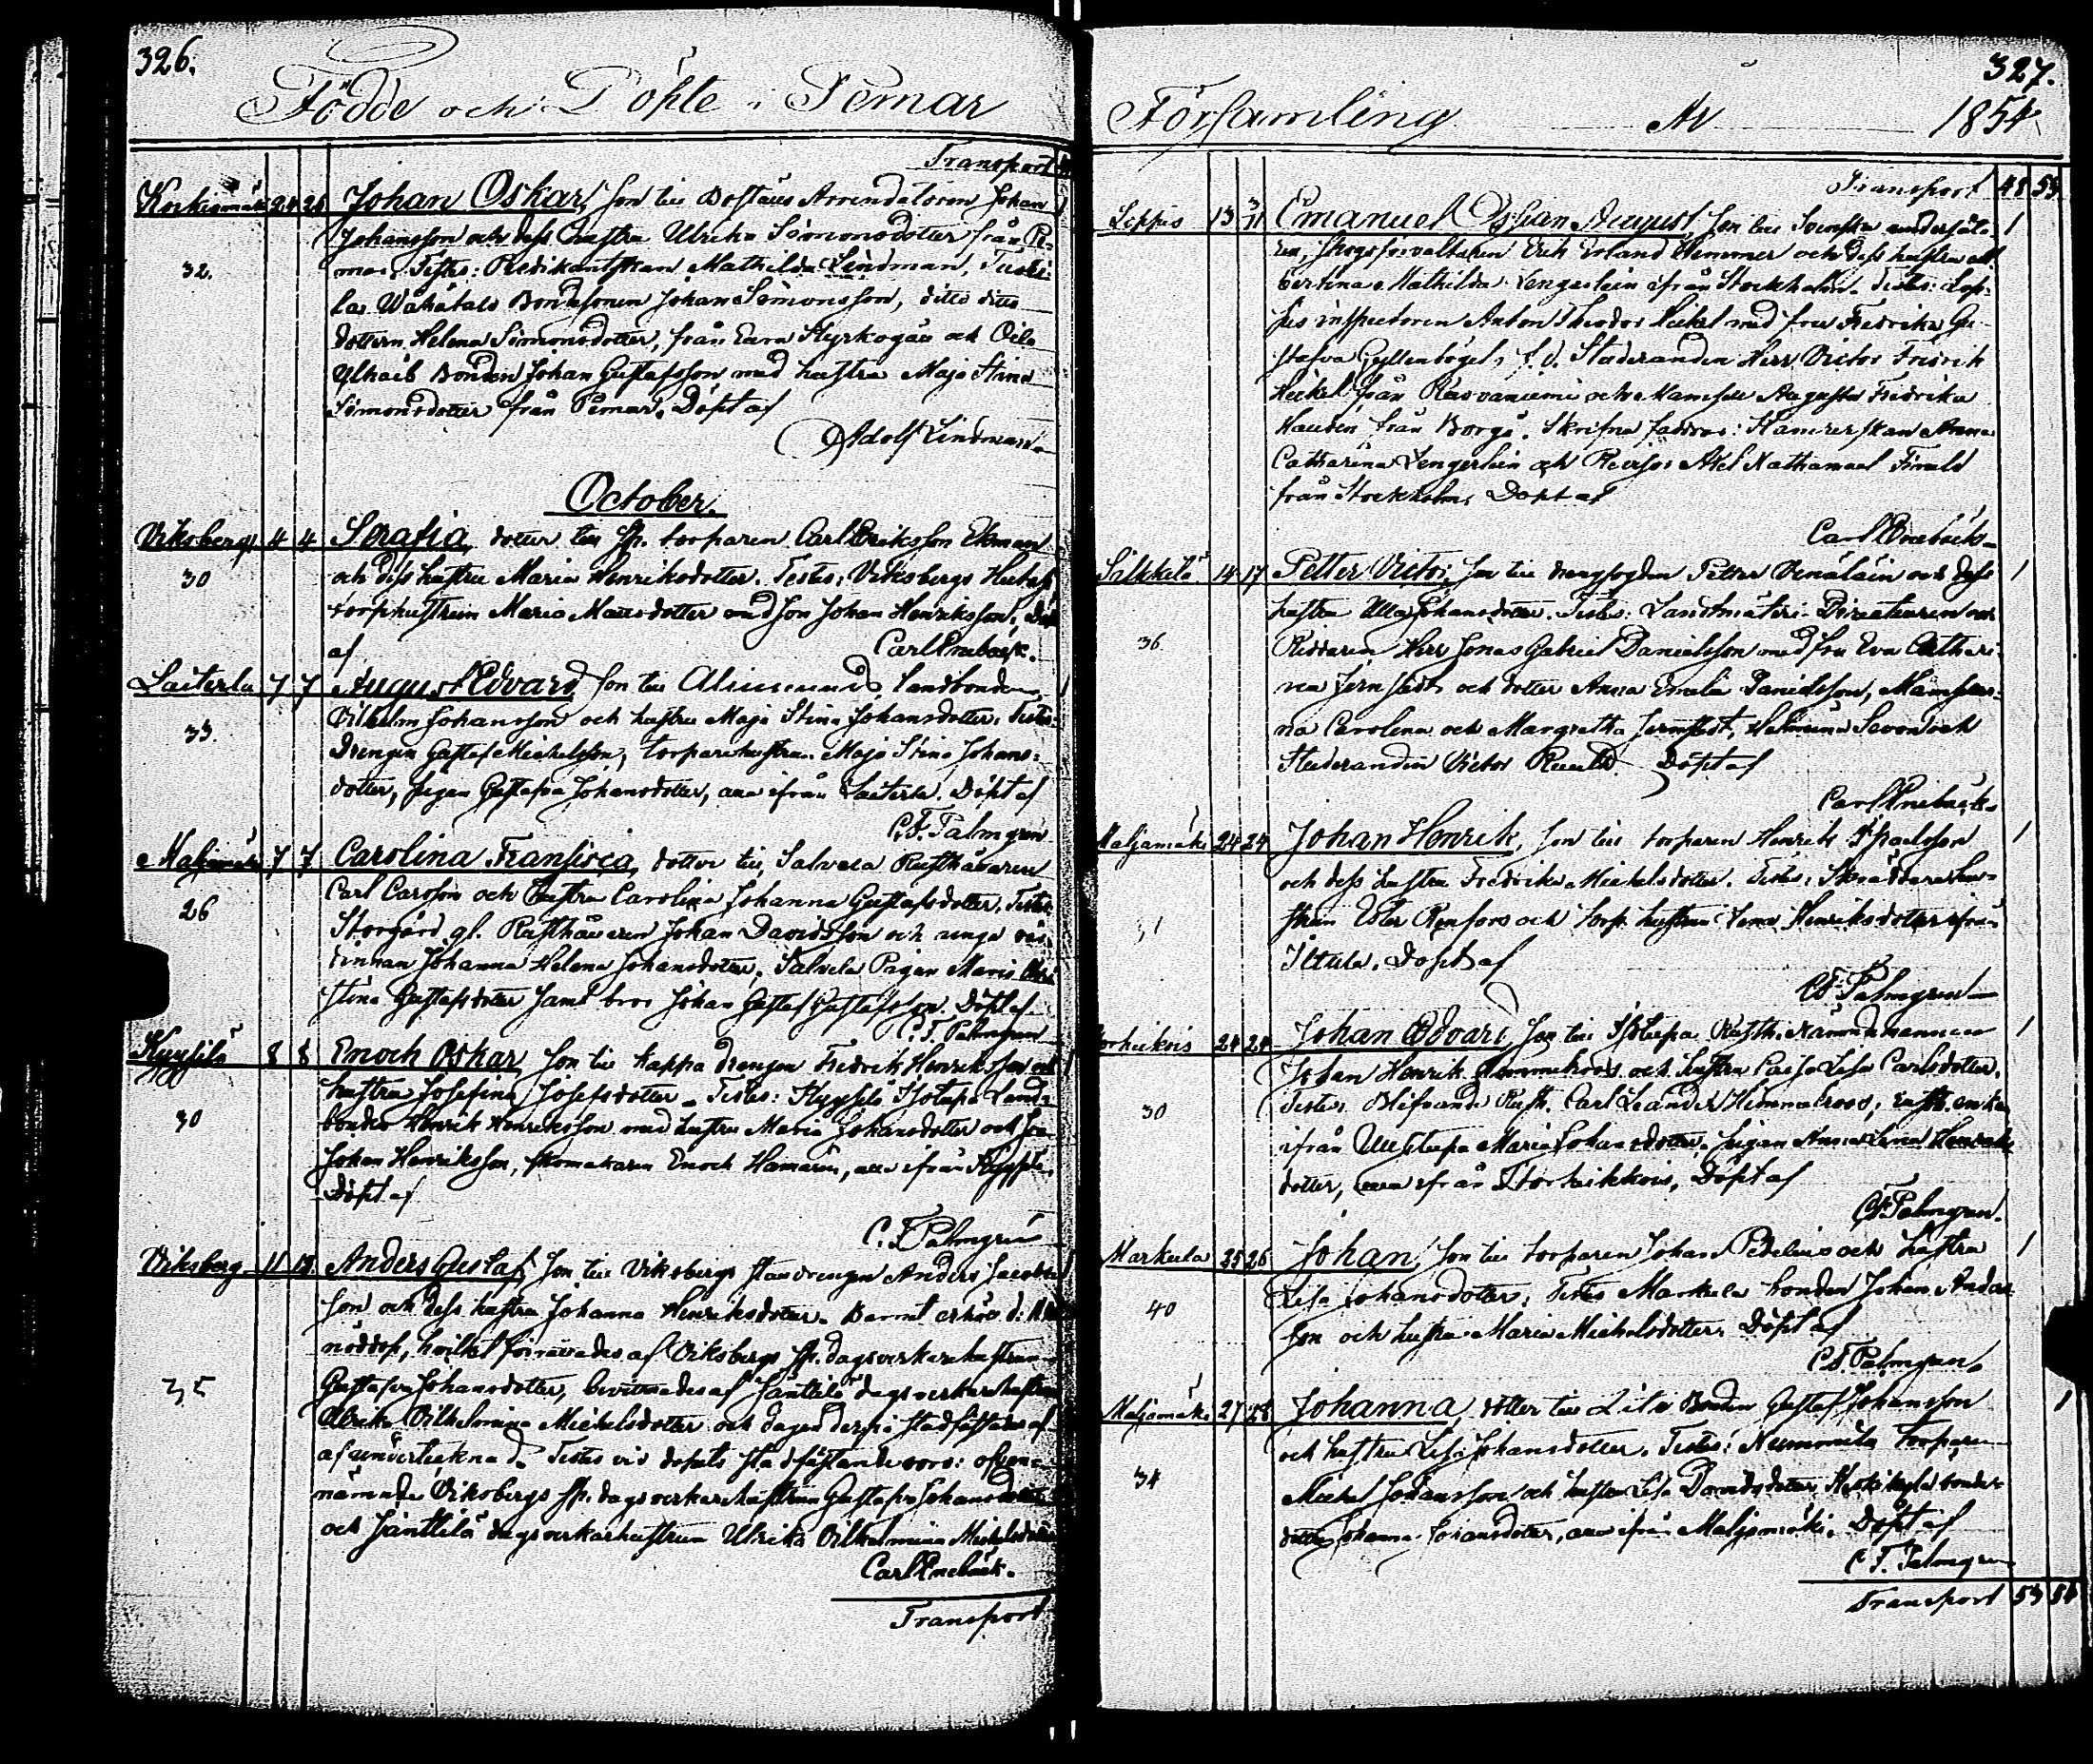 326.
Födde och Döpte i Pemar
Transport
Korkiamäki 24 26 Johan Oskar, son till Boställs Arrendatoren Johan
Johansson och dess hustru Ulrika Simonsdotter från Pe-
mar. Testes: Predikantskan Mathilda Lindman,
32.
Bondesonen Johan Simonsson, ditto ditto
dottern Helena Simonsdotter, från och
Bonden Johan Gustafsson med hustru Maja Stina
Simonsdotter från Pemar. Döpt af
Adolf Lindman
October.
Viksberg 4 4 Serafia, dotter till sp. torparen Carl Eriksson Ekman
30
och dess hustru Maria Henriksdotter. Testes: Viksbergs
torphustrun Maria Matsdotter med son Johan Henriksson,
af Carl Enebäck.
Laiterla 7 7 August Edvard, son till landbonden
33.
Vilhelm Johansson och hustru Maja Stina Johansdotter. Testes:
Drengen Gustaf Michelsson, torparehustrun Maja Stina Johans-
dotter, pigan Gustafva Johansdotter, alla ifrån Laiterla. Döpt af
C.F. Palmgren
Maljamäki 7 7 Carolina Fransisca, dotter till Salvela Rusthållaren
26
Carl Carlsson och hustru Carolina Johanna Gustafsdotter. Testes:
Storgård gl. Rusthållaren Johan Davidsson och unga vär-
dinnan Johanna Helena Johansdotter, Salvela Pigan Maria
stina Gustafsdotter samt bror Johan Gustaf Gustafsson. Döpt af
C.F. Palmgren
Kyysilä 8 8 Enoch Oskar, son till Kappa drengen Fredrik Henriksson och
30
hustru Josefina Josefsdotter. Testes: Kyysilä Isotupa land-
bonden Henrik Henriksson med hustru Maria Johansdotter och
Johan Henriksson, skomakaren Enoch Hamarin, alla ifrån Kyysilä.
Döpt af
C.F. Palmgren
Viksberg 11 15. Anders Gustaf, son till Viksbergs staldrengen Anders Jacobs-
son och dess hustru Johanna Henriksdotter. Barnet erhöll d.
nöddop, hvilket förrättades af Viksbergs sp. dagsverkarehustrun
35
Gustafva Johansdotter, bevittnades af Jänttilä dagsverkarehustrun
Ulrika Vilhelmina Michelsdotter och dagen derpå stadfästades af
af undertecknad. Testes vid dopets stadfästande voro: ofvan-
nämnde Viksbergs sp. dagsverkarehustrun Gustafva Johansdotter
och Jänttilä dagsverkarhustrun Ulrika Vilhelmina Michelsdotter
Carl Enebäck.
Transport
327.
Församling År 1854
Transport 48 53
Seppis 13 3/11 Emanuel Ossian August, son till Svenska undersåte- 1
ren, skogsförvaltaren Erik Erland Hemmer och dess hustru Al-
bertina Mathilda Lengerlein ifrån Stockholm. Testes:
inspectoren Anton Theodor Heikel med fru Fredrika Gu-
stafva Gyllenbögel, f.d. Studeranden Herr Victor Fredrik
Heikel från och Mamsell Augusta Fredrika
från Borgå. Skrifna faddrar: Kamrerskan Anna
Catharina Lengerlein och Revisor Axel Nathanael
från Stockholm. Döpt af
Carl Enebäck
14 17 Petter Victor, son till drengfogden Petter Venäläin och dess 1
36.
hustru Ulla Johansdotter. Testes: Landtmäteri Directeuren och
Riddaren Herr Jonas Gabriel Danielsson med fru Eva Cathari-
na Jernstedt och dotter Anna Emelie Danielsson, Mamseller-
na Carolina och Margretha Jernstedt, och
Studeranden Victor Döpt af
Carl Enebäck
Maljamäki 24 24 Johan Henrik, son till torparen Henrik 1
31
och dess hustru Fredrika Michelsdotter. Testes: Skräddarehu-
strun Renfors och torp. hustrun Lena Henriksdotter ifrån
Iltula. Döpt af
C.F. Palmgren
24 24 Johan Edvard, son till Isotupa Rusth. Nämndemannen 1
30
Johan Henrik Himmelroos och hustru Caisa Lisa Carlsdotter.
Testes: Blifvande Rusth. Carl Leander Himmelroos, enkan
ifrån Maria Johansdotter, pigan Anna Lena Henriks-
dotter, alla ifrån Storheikkois, Döpt af
C.F. Palmgren.
Markula 25 26 Johan, son till torparen Johan Petelius och hustru 1
40
Lisa Johansdotter. Testes Markula bonden Johan Anders-
son och hustru Maria Michelsdotter. Döpt af
C.F. Palmgren
Maljamäki 27 28 Johanna, dotter till Lilu Bonden Gustaf Johansson 1
34
och hustru Lisa Johansdotter. Testes: Nummila torparen
Michel Johansson och hustru Lisa Davidsdotter, bonde-
dotter Johanna Johansdotter, alla ifrån Maljamäki. Döpt af
C.F. Palmgren
Transport 53 54